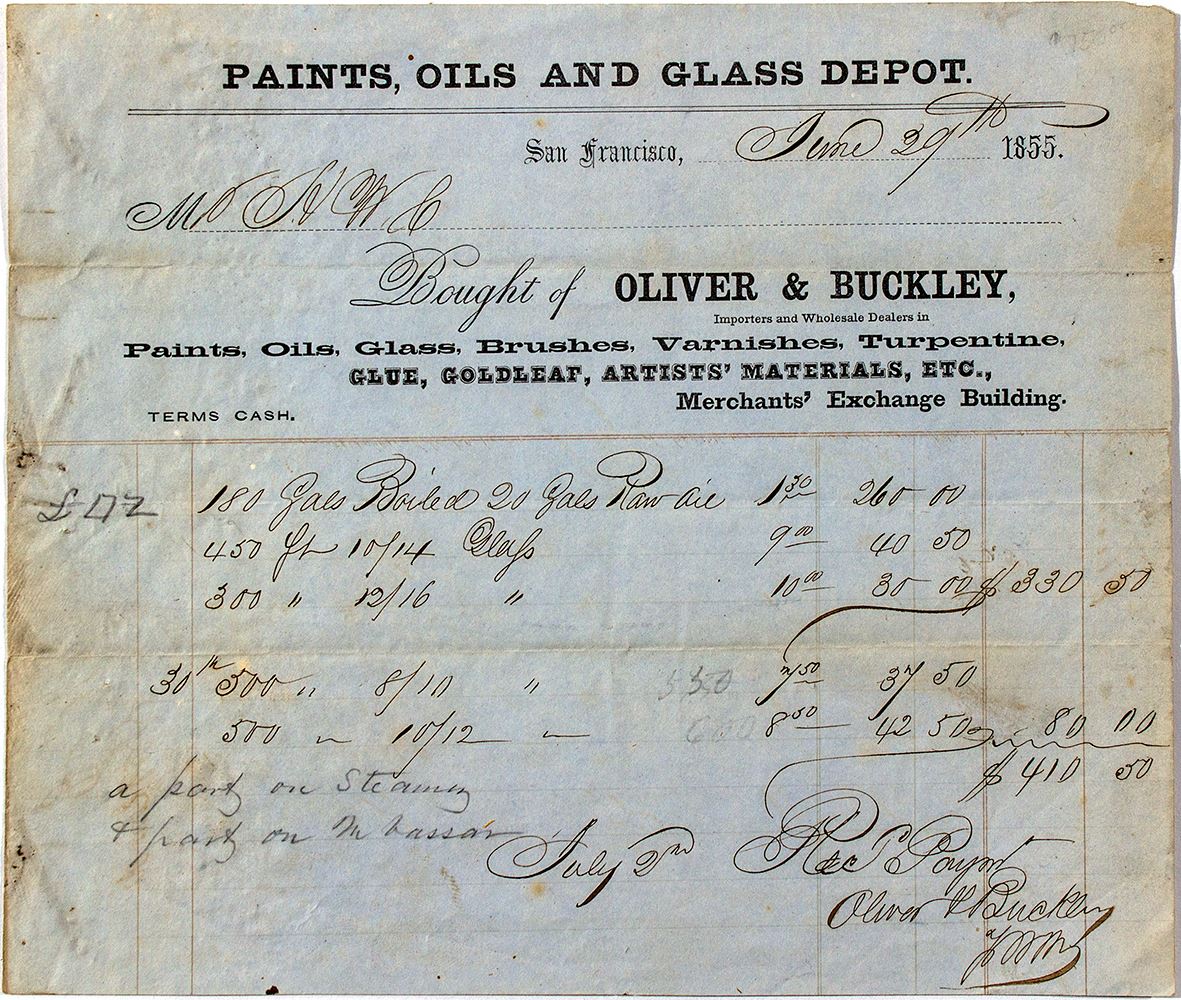 PAINTS, OILS AND GLASS DEPOT.
San Francisco, June 29th 1855.
Mr A W C
Bought of OLIVER & BUCKLEY,
Importers and Wholesale Dealers in
Paints, Oils, Glass, Brushes, Varnishes, Turpentine,
GLUE, GOLDLEAF, ARTISTS' MATERIALS, ETC.,
Merchants' Exchange Building.
TERMS CASH.
180 Gals Boiled 20 Gals Raw Oil 1 30 260 00
450 ft 10/14 Glass 9 00 40 50
300 " 12/16 " 10 00 30 00 $ 330 50
30th 500 " 8/10 " 7 50 37 50
500 " 10/12 " 8 50 42 50 80 00
$ 410 50
a part on Steamer
& part on
July 2nd Rec'd Paymt
Oliver & Buckley